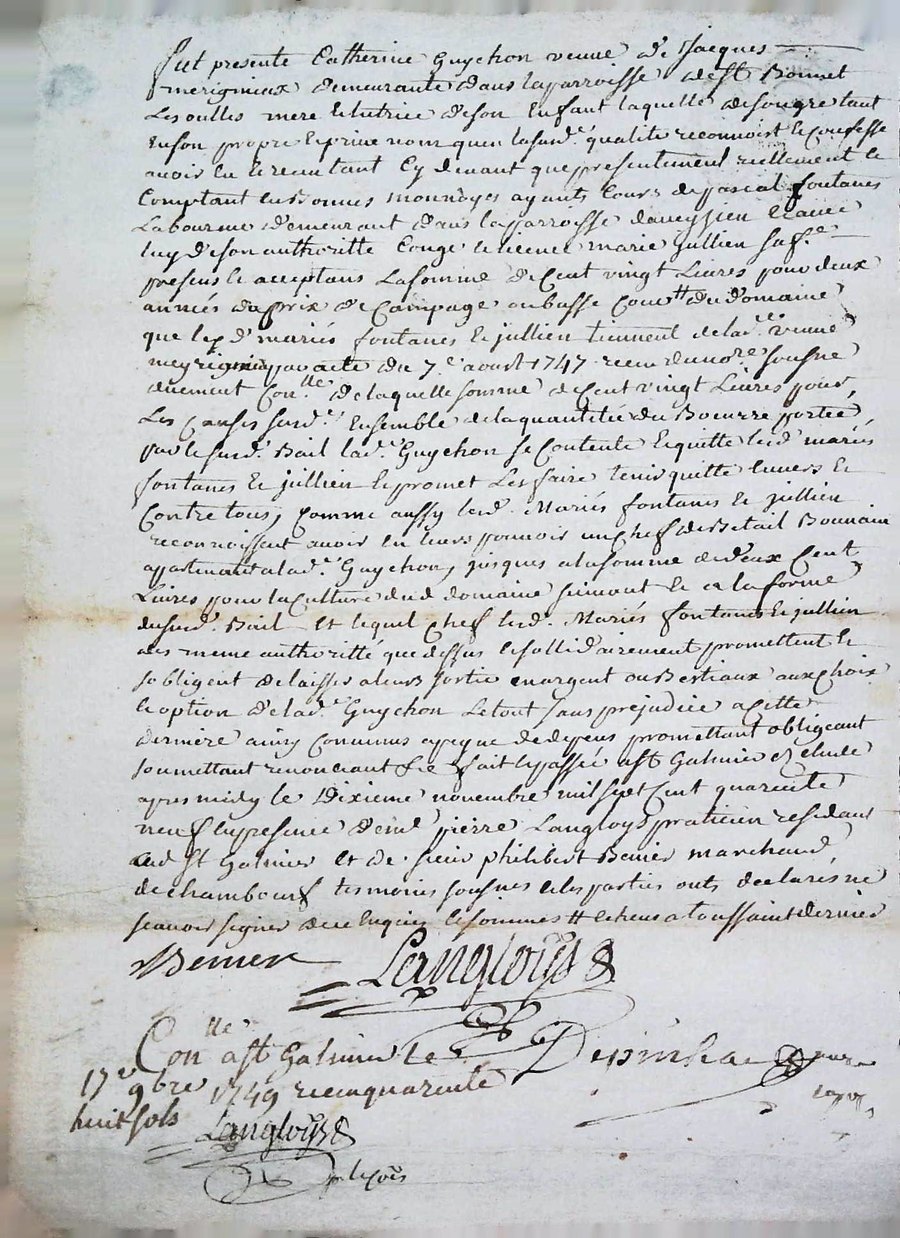 fut presente Catherine Guychon veuve de Jacques
merigniax demeurante dans la parroisse de st Bonnet
Les oulles mere et tutrice de son Enfant laquelle de son gre tant
en son propre et prive nom qu'en la susd.e qualité reconnoist et confesse
avoir eu et receu tant cy devant que presentement reellement et
Comptant en Bonnes monnoyes ayants Cours de pascal fontanes
Laboureur demeurant dans la parroisse d'aveyzieu et avec
luy de son authoritté Congé et licence marie jullien sa f.e
presens et aceptans La somme de Cent vingt Livres pour deux
années du prix de Campage ou basse du domaine
que les d mariés fontanes et jullien tiennent de lad.e veuve
meyrigniax par acte du 7.e aoust 1747 receu du no.re sousne
duement Con.lle de laquelle somme de Cent vingt Livres pour
Les Causes susd.es Ensemble de la quantitée du Beurre portée
par le susd. Bail lad.e Guychon se Contente et quitte lesd mariés
fontanes et jullien et promet Les faire tenir quitte envers et
Contre tous, Comme aussy lesd. Mariés fontanes et jullien
reconnoissent avoir en leurs pouvoir un Chef de Betail
appartenant a lad.e Guychon, jusques a la somme de deux Cent
Livres pour la Culture dud domaine suivant et a la forme
du susd. Bail et lequel Chef lesd. Mariés fontanes et jullien
de meme authoritté que dessus et sollidairement promettent et
s'obligent de laisser a leurs sortie en argent ou Bestiaux aux Choix
et option de lad.e Guychon Le tout sans prejudice a cette
derniere promettant obligeant
soumettant renonciant &c fait et passé a st Galmier Etude
apres midy le Dixieme novembre mil sept Cent quarente
neuf en presence de m.e pierre Langloys praticien residant
aud st Galmier et de sieur philibert Benier marchand
de chambeuf tesmoins sousnes et les parties onts declarés ne
scavoir signer de ce Enquis et sommes # echeus a toussaint dernier
Benier Langloys
Con.lle a st Galmier le Depinhac
17e 9bre 1749 receu quarente
huit sols
Langloys